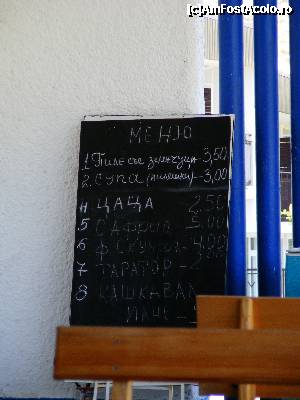 [c]AmFostAcolo.ro
МЕНЮ
1. Пилешко зеленчуци - 3,50
2. Супа (пилешка) - 3,00
4 ЦАЦА 2.50
5 САФРИД 5.00
6 4.00
7 ТАРАТОР -
8 КАШКАВАЛ
ПАНЕ -